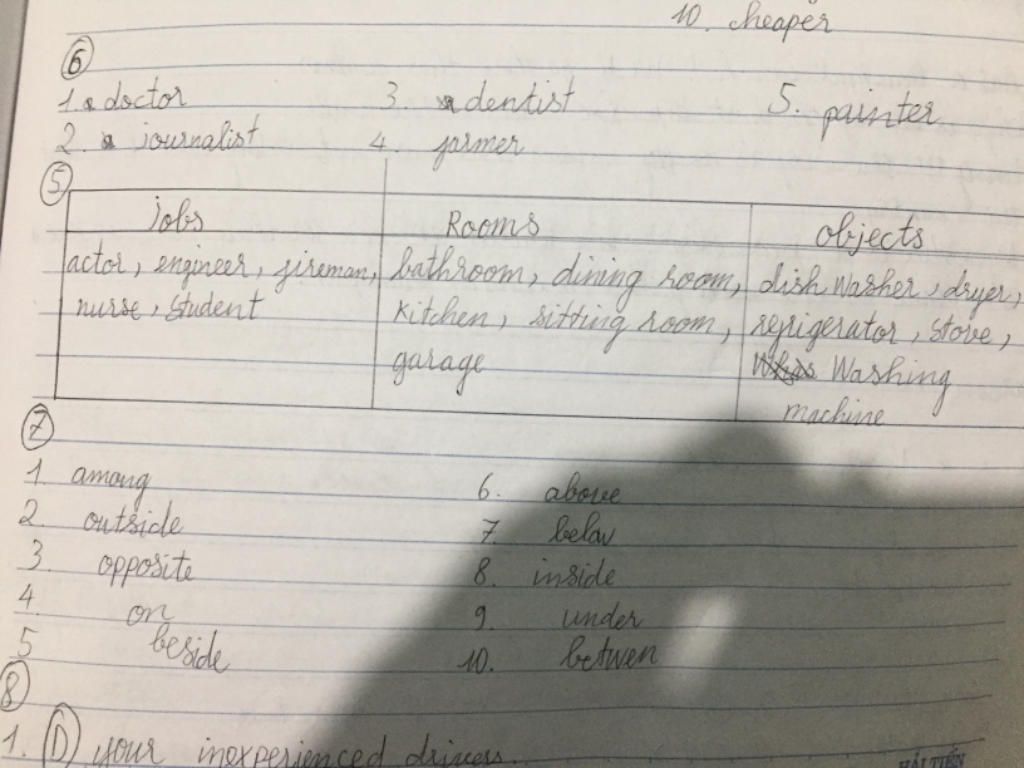 10. cheaper
6
1. doctor 3. dentist 5. painter
2. journalist 4. farmer
5
jobs Rooms objects
actor, engineer, fireman, bathroom, dining room, dish washer, dryer,
nurse, student kitchen, sitting room, refrigerator, stove,
garage Washing
machine
7
1. among 6. above
2. outside 7. below
3. opposite 8. inside
4. on 9. under
5 beside 10. betwen
8
1. D your inexperienced drivers.
HẢI TIẾN